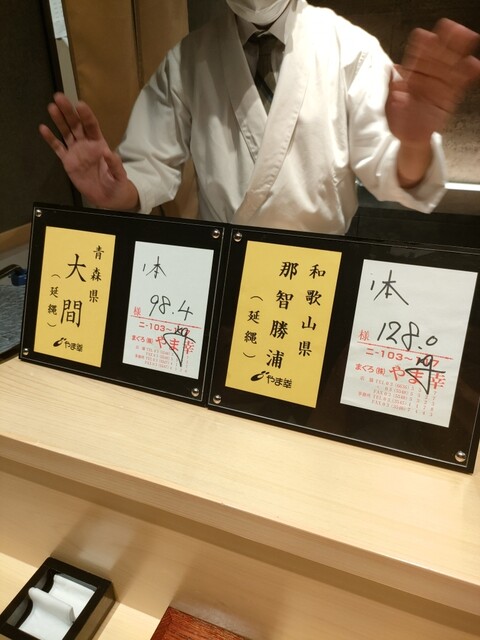 青森県
大間
(延縄)
やま幸
本
98.4
様
ニ-103~
まぐろ(株)やま幸
和歌山県
那智勝浦
(延縄)
やま幸
本
128.0
様
ニ-103~
まぐろ(株)やま幸